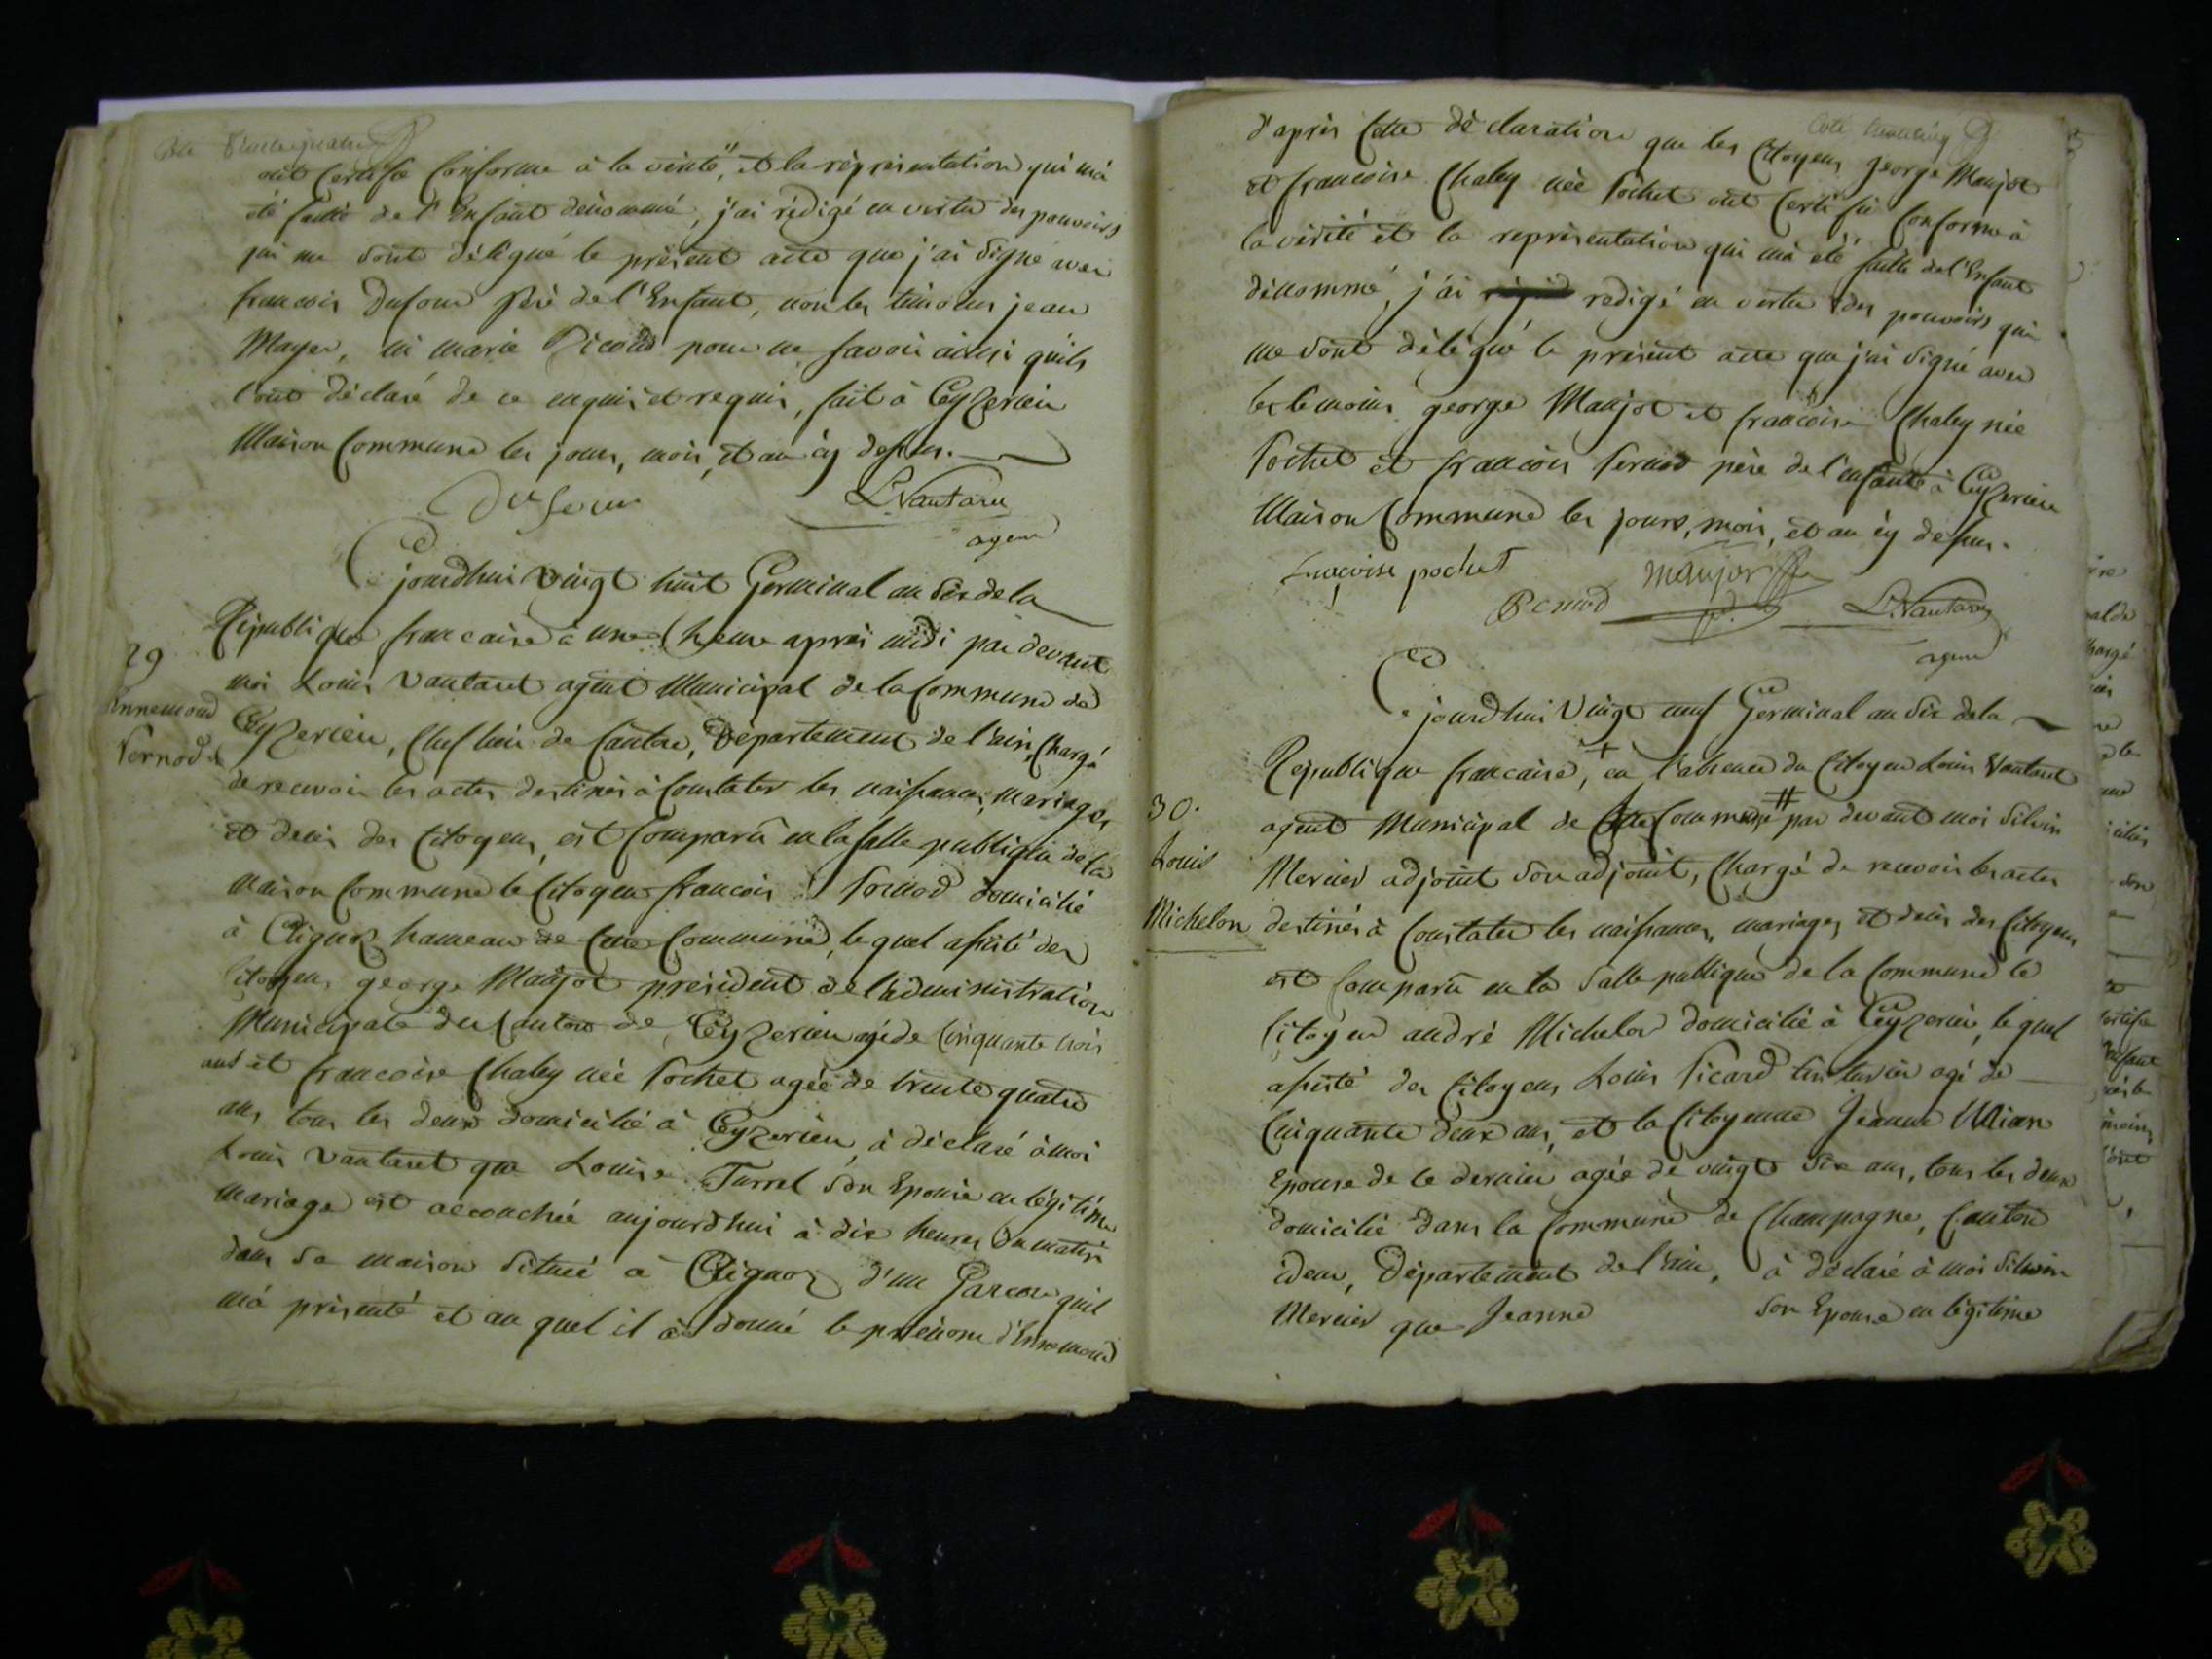 Coté
ont Certifié Conforme à la vérité, et la réprésentation qui m'à
été faitte de l'Enfant dénommé, j'ai rédigé en vertu des pouvoirs
qui me sont délégué le présent acte que j'ai signé avec
francois Dufour père de l'Enfant, non les témoins jean
Mayer, ni marie Picoud pour ne savoir ainsi quils
l'ont déclaré de ce enquis et requis, fait à Ceyzerieu
Maison Commune les jours, mois, et an cÿ dessus.
Dufour L. Vantaret
agent
Ce jourdhui vingt huit Germinal an six de la
République francaise à une heure après midi par devant
29
moi Louis Vantaret agent Municipal de la Commune de
Annemond
Ceyzerieu, Chef lieu de Canton, Département de l'ain, Chargé
Pernod
de recevoir les actes destinés à Constater les naissances, mariages
et decès des Citoyens, est Comparû en la salle publique de la
maison Commune le Citoyen francois Pernod domicilié
à hameau de Cette Commune, le quel assisté des
Citoyens george Maujot président de l'administration
Municipale du Canton de Ceyzerieu agé de Cinquante trois
ans et francoise Chaley née Pochet agée de trente quatre
ans tous les deux domicilié à Ceyzerieu, à déclaré à moi
Louis Vantaret que Louise Turrel son Epouse en légitime
mariage est accouchée aujourdhui à dix heures du matin
dans sa maison située à d'un Garcon quil
m'à présenté et au quel il à donné le prénom d'Ennemond
Coté trente cinq
d'après Cette déclaration que les Citoyens george Maujot
et francoise Chaley née Pochet ont Certifié Conforme à
la vérité et la représentation qui m'à été faitte de l'Enfant
dénommé, j'ai redigé en vertu des pouvoirs qui
me sont délégué le présent acte que j'ai signé avec
les temoins george Maujot et francoise Chaley née
Pochet et francois Pernod père de l'enfant à Ceyzerieu
Maison Commune les jours, mois, et an cÿ dessus.
francoise pochet maujot
Pernod L. Vantaret
agent
Ce jourdhui vingt neuf Germinal an six de la
République francaise, + en l'absence du Citoyen Louis Vantaret
30.
agent Municipal de Cette Commune # par devant moi Silvin
Louis
Mercier adjoint son adjoint, Chargé de recevoir les actes
Michelon
destinés à Constater les naissances, mariages et decès des Citoyens
est Comparû en la salle publique de la Commune le
Citoyen andré Michelon domicilié à Ceyzerieu, le quel
assisté des Citoyens Louis Picard agé de
Cinquante deux ans, et la Citoyenne Jeanne
Epouse de ce dernier agée de vingt six ans, tous les deux
domicilié dans la Commune de Champagne, Canton
idem, Département de l'ain, à déclaré à moi Silvin
Mercier que Jeanne son Epouse en légitime